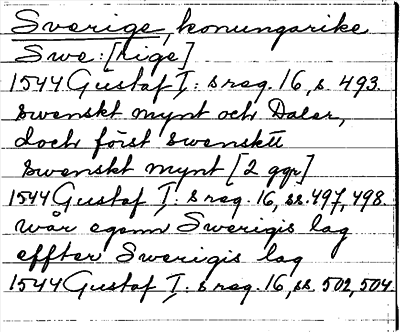 Sverige, konungarike
Swe: [rige]
1544 Gustaf I: s reg. 16, s. 493.
swenskt mynt och Daler,
doch först swensktt
swenskt mynt [2 ggr]
1544 Gustaf I: s reg. 16, ss. 497, 498.
wår egenn Swerigis lag
effter Swerigis lag
1544 Gustaf I: s reg. 16, ss. 502, 504